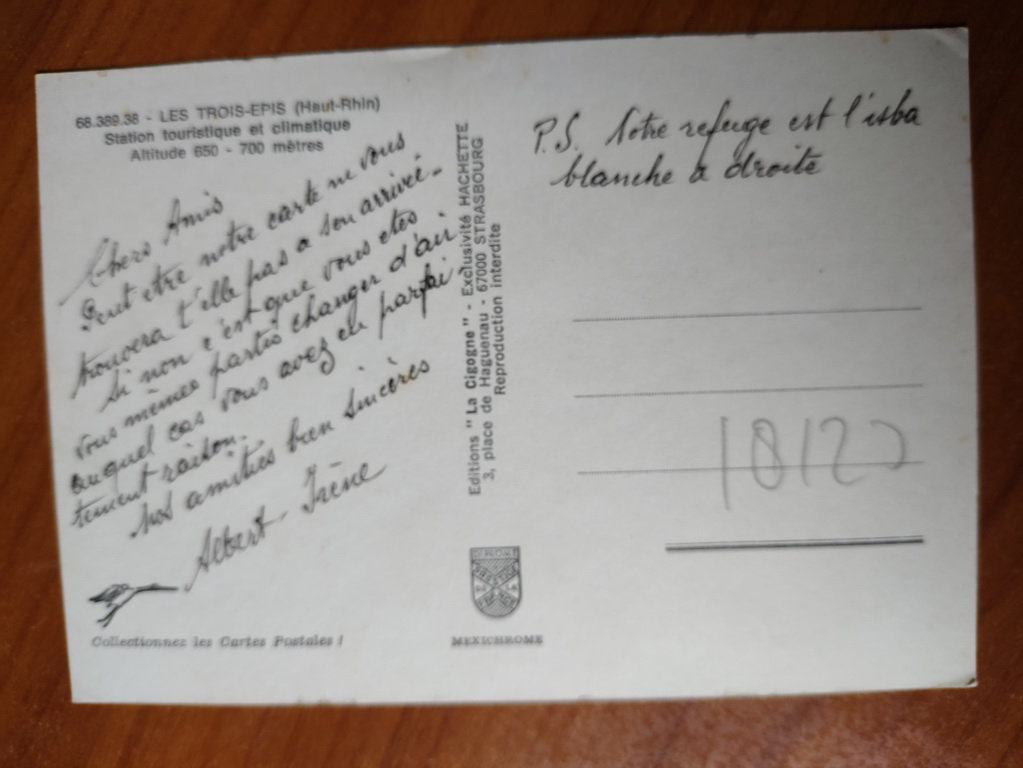 68.389.38 - LES TROIS-EPIS (Haut-Rhin)
Station touristique et climatique
Altitude 650 - 700 mètres
Chers Amis
Peut etre notre carte ne vous
trouvera t'elle pas a son arrivée -
Si non c'est que vous etes
vous mêmes partis changer d'air
auquel cas vous avez eu parfai
tement raison.
Nos amitiés bien sincères
Albert - Irène
Collectionnez les Cartes Postales !
Editions "La Cigogne" - Exclusivité HACHETTE
3, place de Haguenau - 67000 STRASBOURG
Reproduction interdite
MEXICHROME
P.S. Notre refuge est l'isba
blanche a droite
18122